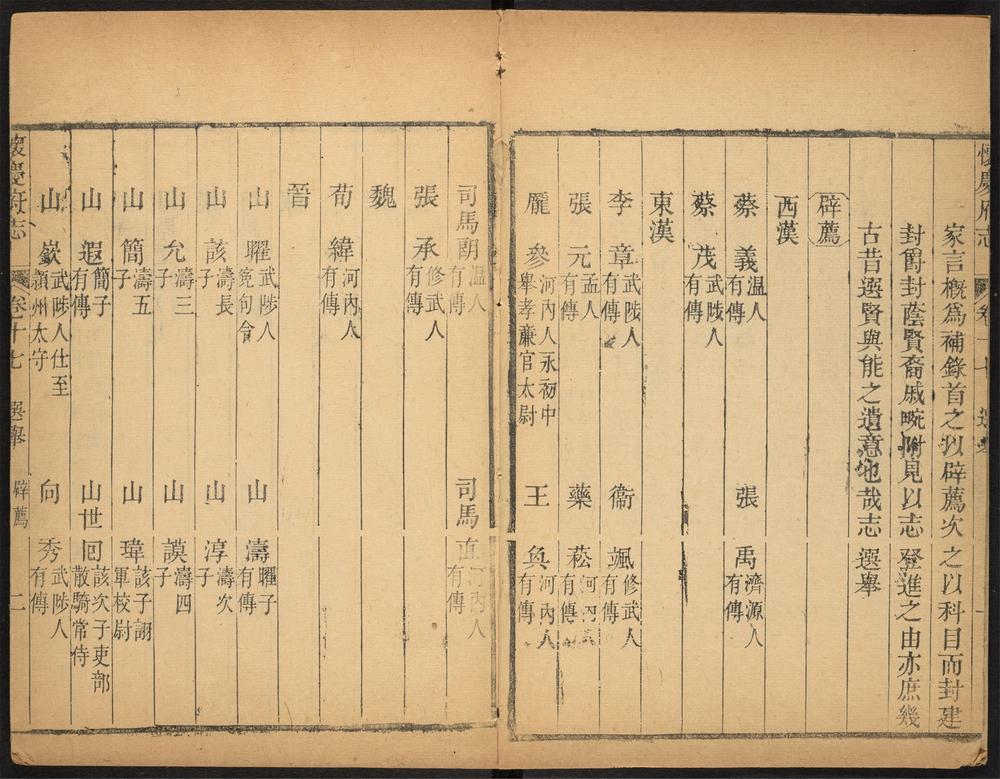 懷慶府志
卷十七
家言概爲補錄首之以辟薦次之以科目而封建
封爵封蔭賢裔戚畹附見以志登進之由亦庶幾
古昔選賢與能之遺意也哉志選舉
辟薦
西漢
蔡義溫人有傳 張禹濟源人有傳
蔡茂武陟人有傳
東漢
李章武陟人有傳 衞颯修武人有傳
張元孟人有傳 藥菘河內人有傳
龐參河內人永初中舉孝廉官太尉 王奐河內人有傳
司馬朗溫人有傳 司馬直河內人有傳
張承修武人有傳
魏
荀緯河內人有傳
晉
山曜武陟人寃句令 山濤曜子有傳
山該濤長子 山淳濤次子
山允濤三子 山謨濤四子
山簡濤五子 山瑋該子詡軍校尉
山遐簡子有傳 山世回該次子吏部散騎常侍
山嶔武陟人仕至潁州太守 向秀武陟人有傳
懷慶府志 卷十七 選舉 辟薦 二